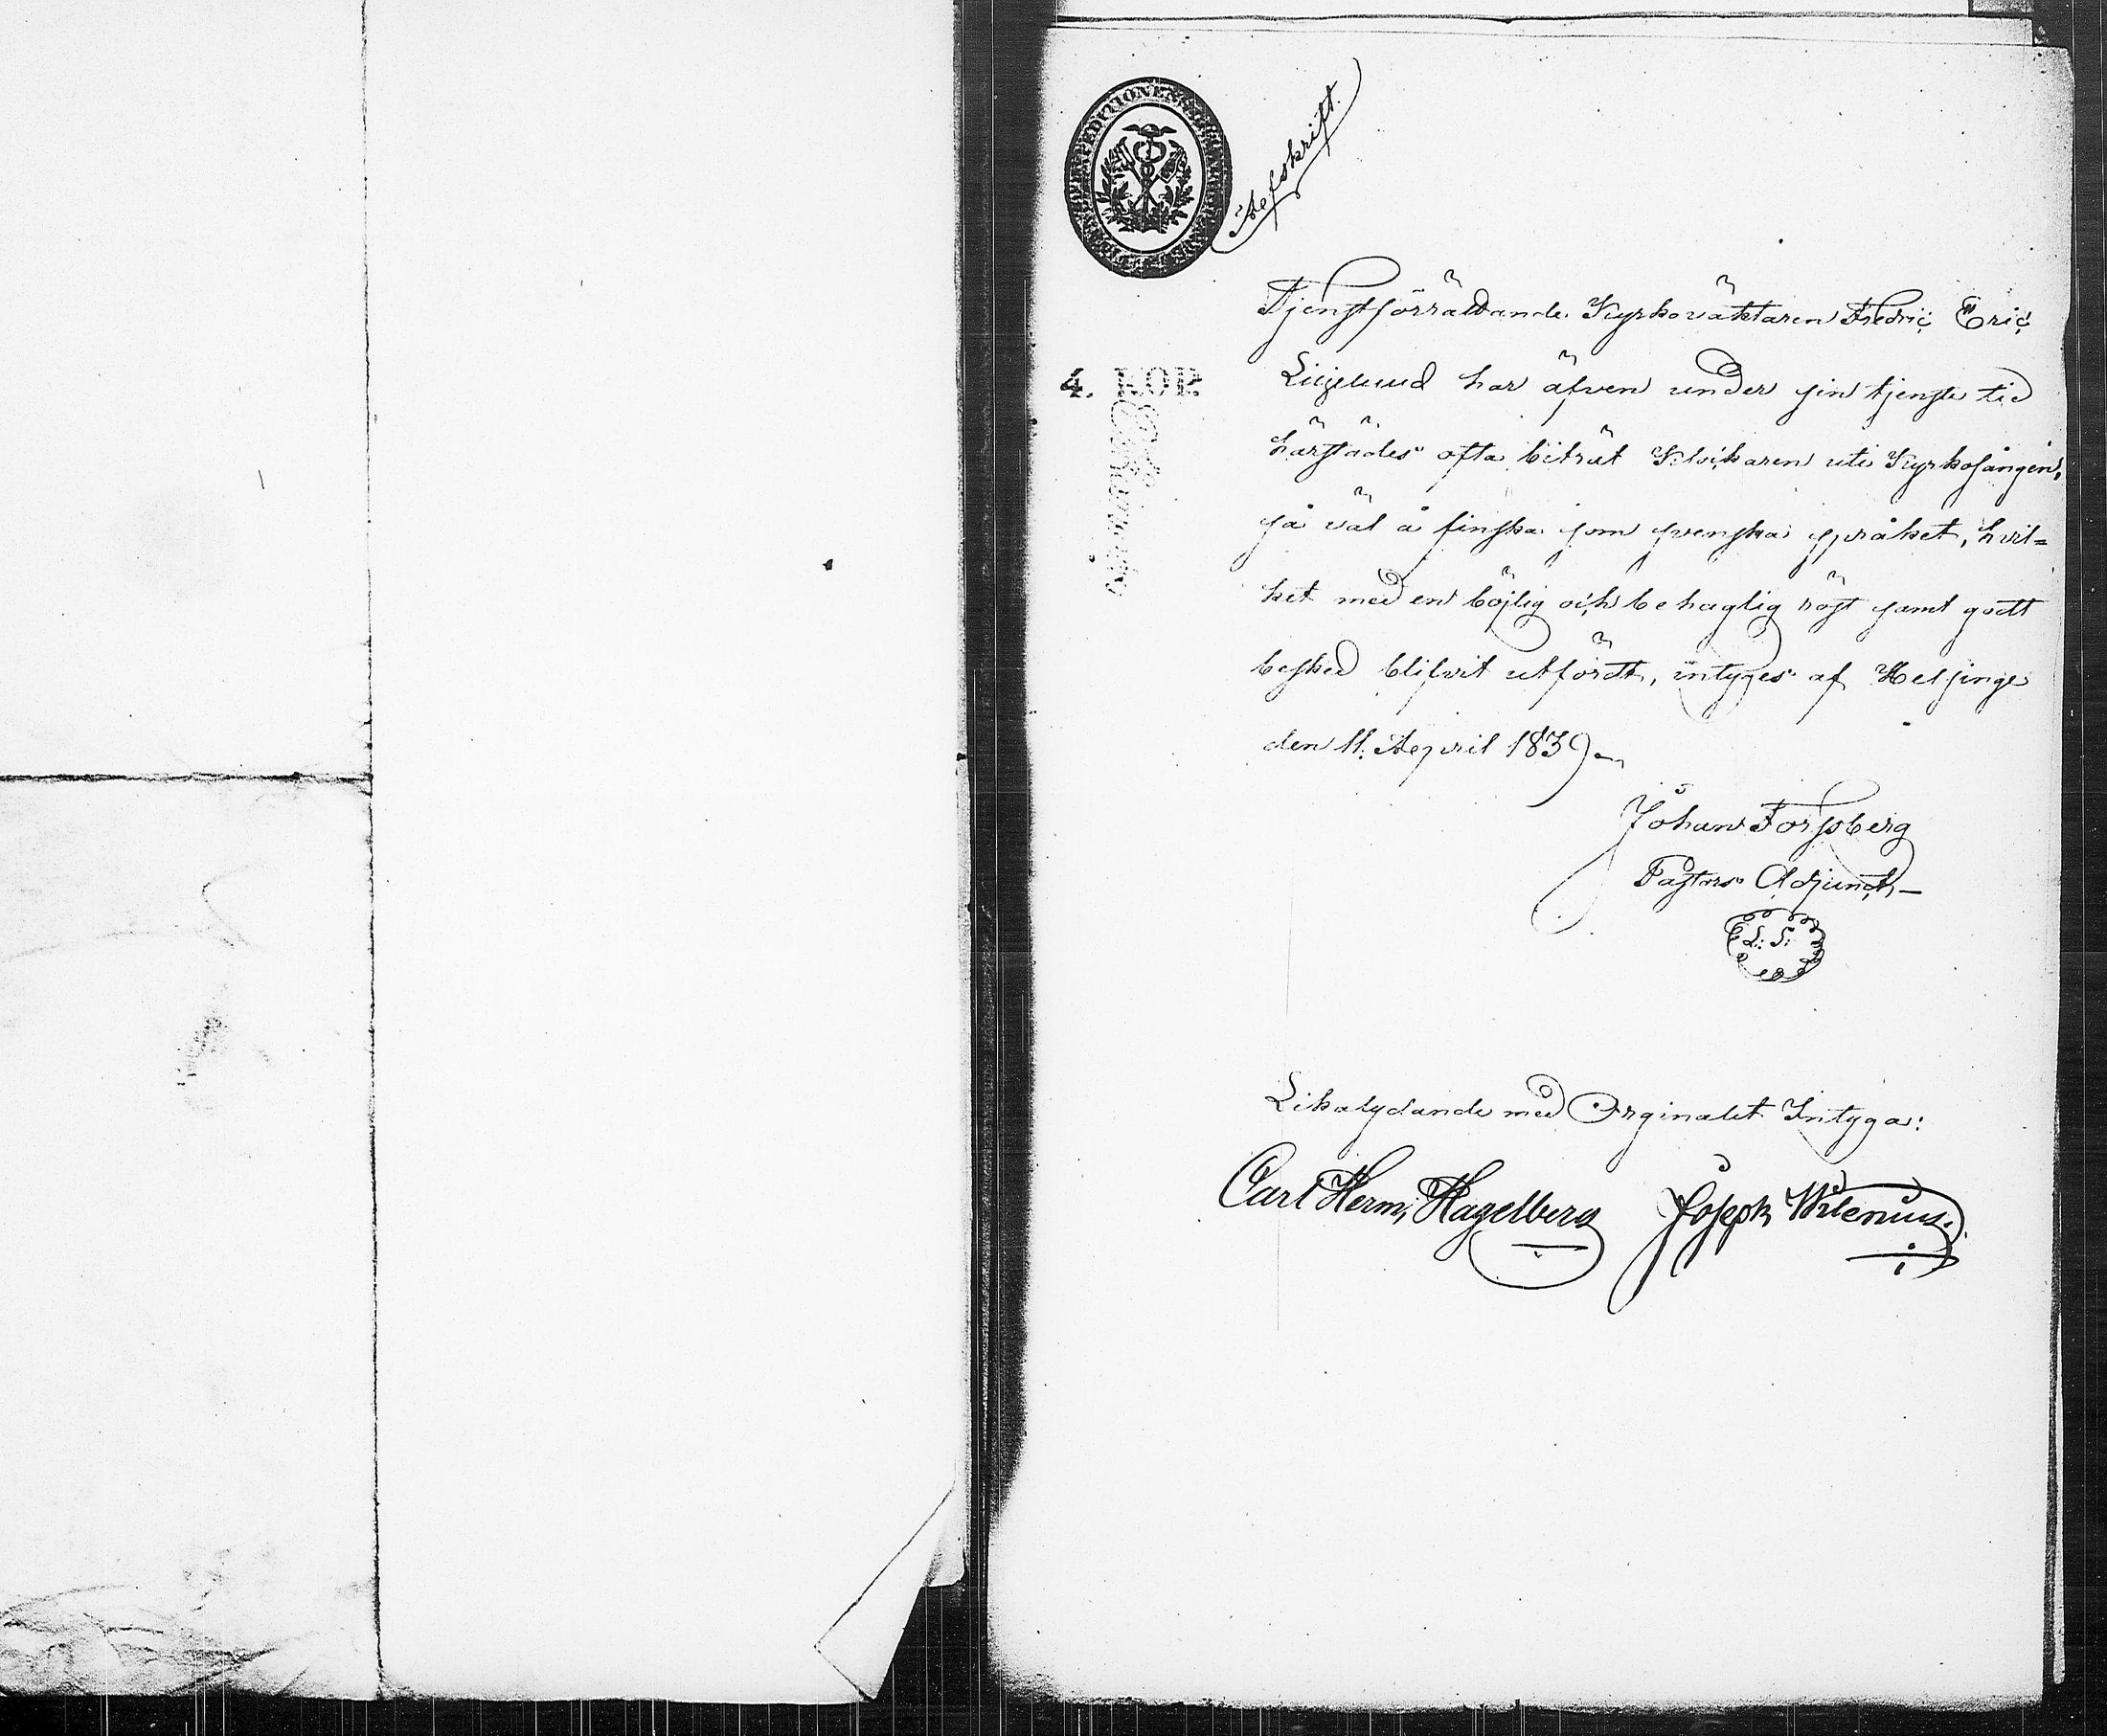 Afskrift.
Tjenstförrättande Kyrkovaktaren Fredric Eric
4. KOP. Liljelund har äfven under sin tjenste tid
härstädes ofta biträt Klockaren uti Kyrkosången,
så väl å finska som svenska språket, hvil=
ket med en böjlig och behaglig röst samt godt
besked blifvit utfördt, intyges af Helsinge
den 11. April 1839
Johan Forssberg
Pastors Adjunct
L: S:
Likalydande med Orginalet Intyga:
Carl Herm, Hagelberg Joseph Wilenius.